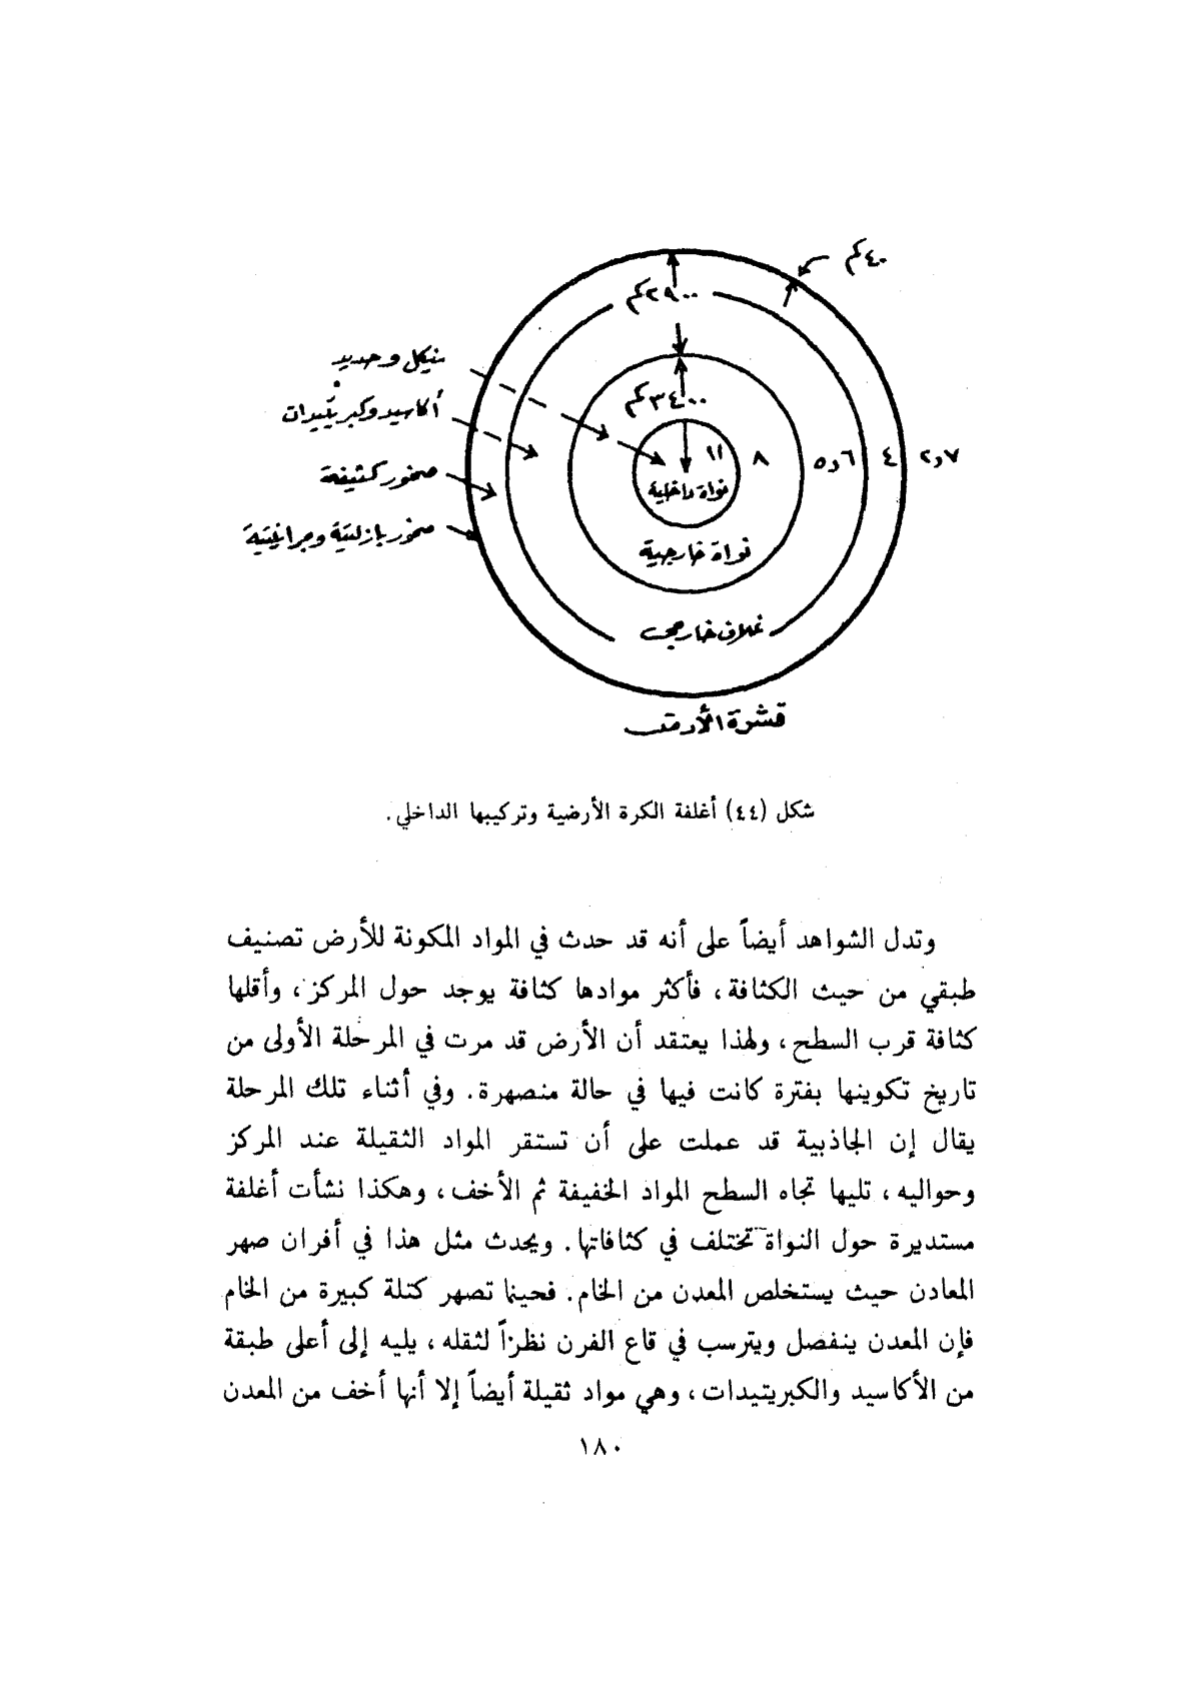 ٤٠ كم
٢٩٠٠ كم
نيكل وحديد
أكاسيد وكبريتيدات
٣٤٠٠ كم
٢٫٧
٤
٥٫٦
٨
١١
صخور كثيفة
نواة داخلية
صخور بازلتية وجرانيتية
نواة خارجية
غلاف خارجي
قشرة الأرض
شكل (٤٤) أغلفة الكرة الأرضية وتركيبها الداخلي.
وتدل الشواهد أيضاً على أنه قد حدث في المواد المكونة للأرض تصنيف
طبقي من حيث الكثافة، فأكثر موادها كثافة يوجد حول المركز، وأقلها
كثافة قرب السطح، ولهذا يعتقد أن الأرض قد مرت في المرحلة الأولى من
تاريخ تكوينها بفترة كانت فيها في حالة منصهرة. وفي أثناء تلك المرحلة
يقال إن الجاذبية قد عملت على أن تستقر المواد الثقيلة عند المركز
وحواليه، تليها تجاه السطح المواد الخفيفة ثم الأخف، وهكذا نشأت أغلفة
مستديرة حول النواة تختلف في كثافاتها. ويحدث مثل هذا في أفران صهر
المعادن حيث يستخلص المعدن من الخام. فحينما تصهر كتلة كبيرة من الخام
فإن المعدن ينفصل ويترسب في قاع الفرن نظراً لثقله، يليه إلى أعلى طبقة
من الأكاسيد والكبريتيدات، وهي مواد ثقيلة أيضاً إلا أنها أخف من المعدن
١٨٠